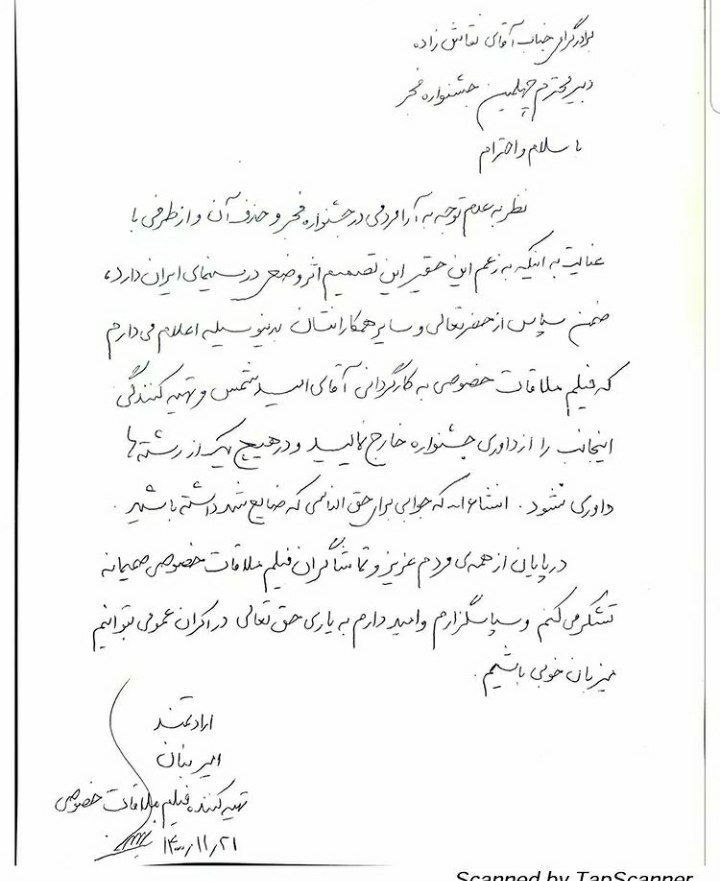 برادرگرامی جناب آقای نقاش زاده
دبیر محترم چهلمین جشنواره فجر
با سلام و احترام
نظر به عدم توجه به آرا مردمی در جشنواره فجر و حذف آن و از طرفی با
عنایت به اینکه به زعم این حقیر این تصمیم اثر وضعی در سینمای ایران دارد،
ضمن سپاس از حضرتعالی و سایر همکارانتان بدینوسیله اعلام می دارم
که فیلم ملاقات خصوصی به کارگردانی آقای امید شمس و تهیه کنندگی
اینجانب را از داوری جشنواره خارج نمایید و در هیچ یک از رشته ها
داوری نشود. انشاءاله که جوابی برای حق الناسی که ضایع شد داشته باشید.
در پایان از همه ی مردم عزیز و تماشاگران فیلم ملاقات خصوصی صمیمانه
تشکر می کنم و سپاسگزارم و امید دارم به یاری حق تعالی در اکران عمومی بتوانیم
میزبان خوبی باشیم.
ارادتمند
امیر بنان
تهیه کننده فیلم ملاقات خصوصی
۱۴۰۰/۱۱/۲۱
Scanned by TapScanner